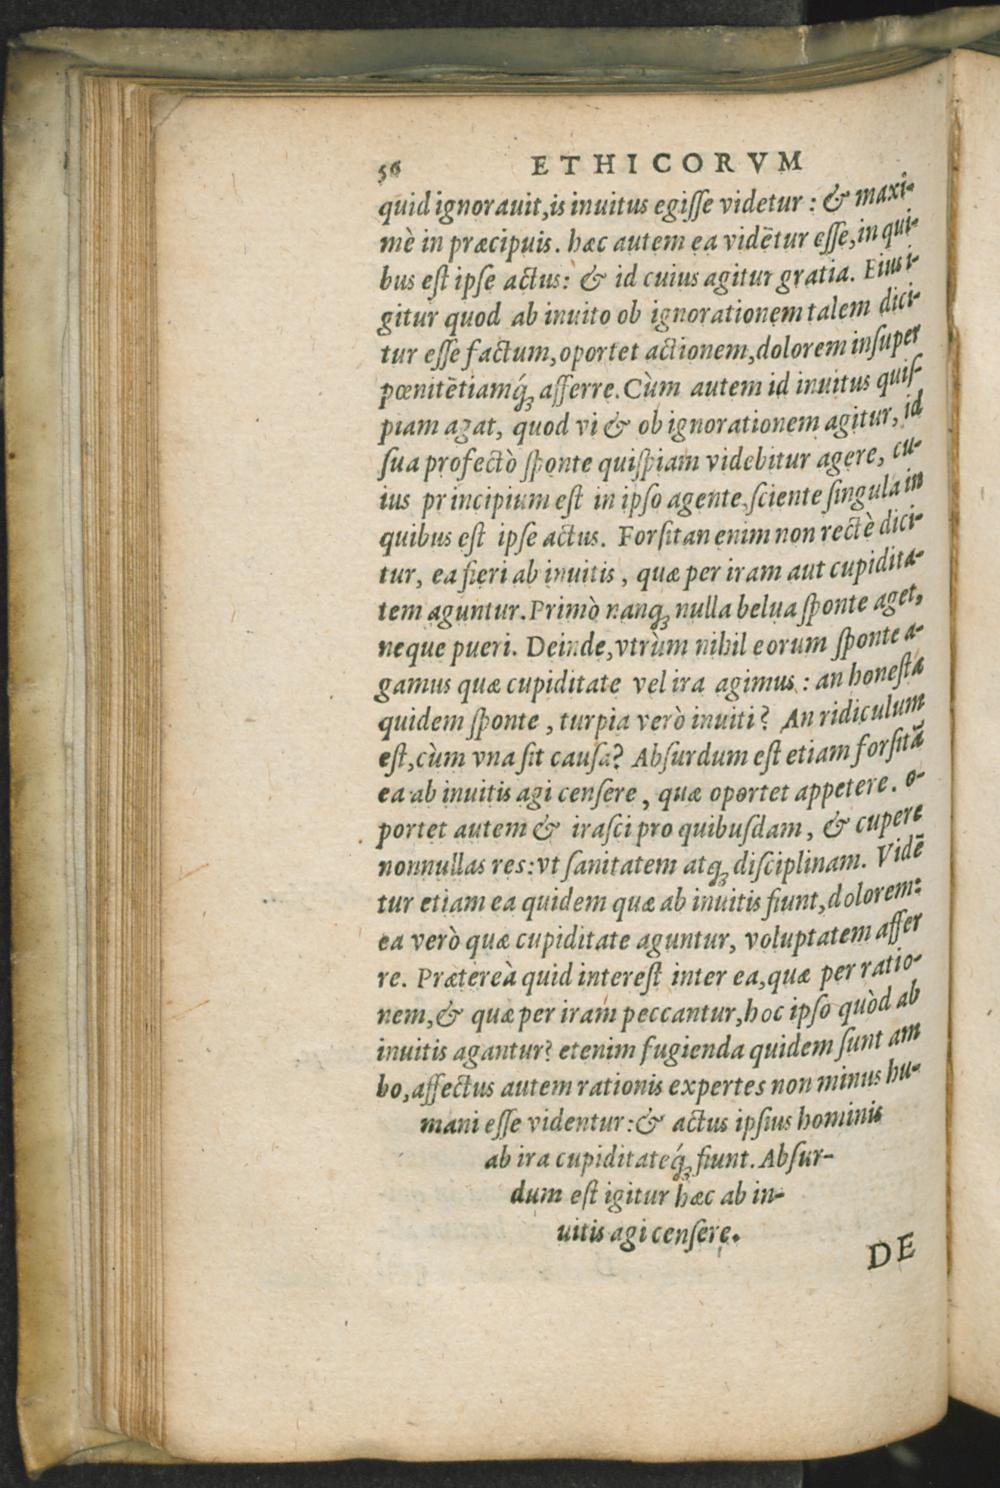 56 ETHICORVM
quid ignorauit, is inuitus egisse videtur : & maxi-
mè in præcipuis. hæc autem ea vidētur esse, in qui-
bus est ipse actus: & id cuius agitur gratia. Eius i-
gitur quod ab inuito ob ignorationem talem dici-
tur esse factum, oportet actionem, dolorem insuper
pœnitētiamq́ꝫ afferre. Cùm autem id inuitus quis-
piam agat, quod vi & ob ignorationem agitur, id
sua profectò sponte quispiam videbitur agere, cu-
ius principium est in ipso agente, sciente singula in
quibus est ipse actus. Forsitan enim non rectè dici-
tur, ea fieri ab inuitis, quæ per iram aut cupidita-
tem aguntur. Primò nanqꝫ nulla belua sponte aget,
neque pueri. Deinde, vtrùm nihil eorum sponte a-
gamus quæ cupiditate vel ira agimus : an honesta
quidem sponte, turpia verò inuiti? An ridiculum
est, cùm vna sit causa? Absurdum est etiam forsitā
ea ab inuitis agi censere, quæ oportet appetere. o-
portet autem & irasci pro quibusdam, & cupere
nonnullas res: vt sanitatem atqꝫ disciplinam. Vidē
tur etiam ea quidem quæ ab inuitis fiunt, dolorem:
ea verò quæ cupiditate aguntur, voluptatem affer
re. Prætereà quid interest inter ea, quæ per ratio-
nem, & quæ per iram peccantur, hoc ipso quòd ab
inuitis agantur? etenim fugienda quidem sunt am
bo, affectus autem rationis expertes non minus hu-
mani esse videntur: & actus ipsius hominis
ab ira cupiditateq́ꝫ fiunt. Absur-
dum est igitur hæc ab in-
uitis agi censere.
DE